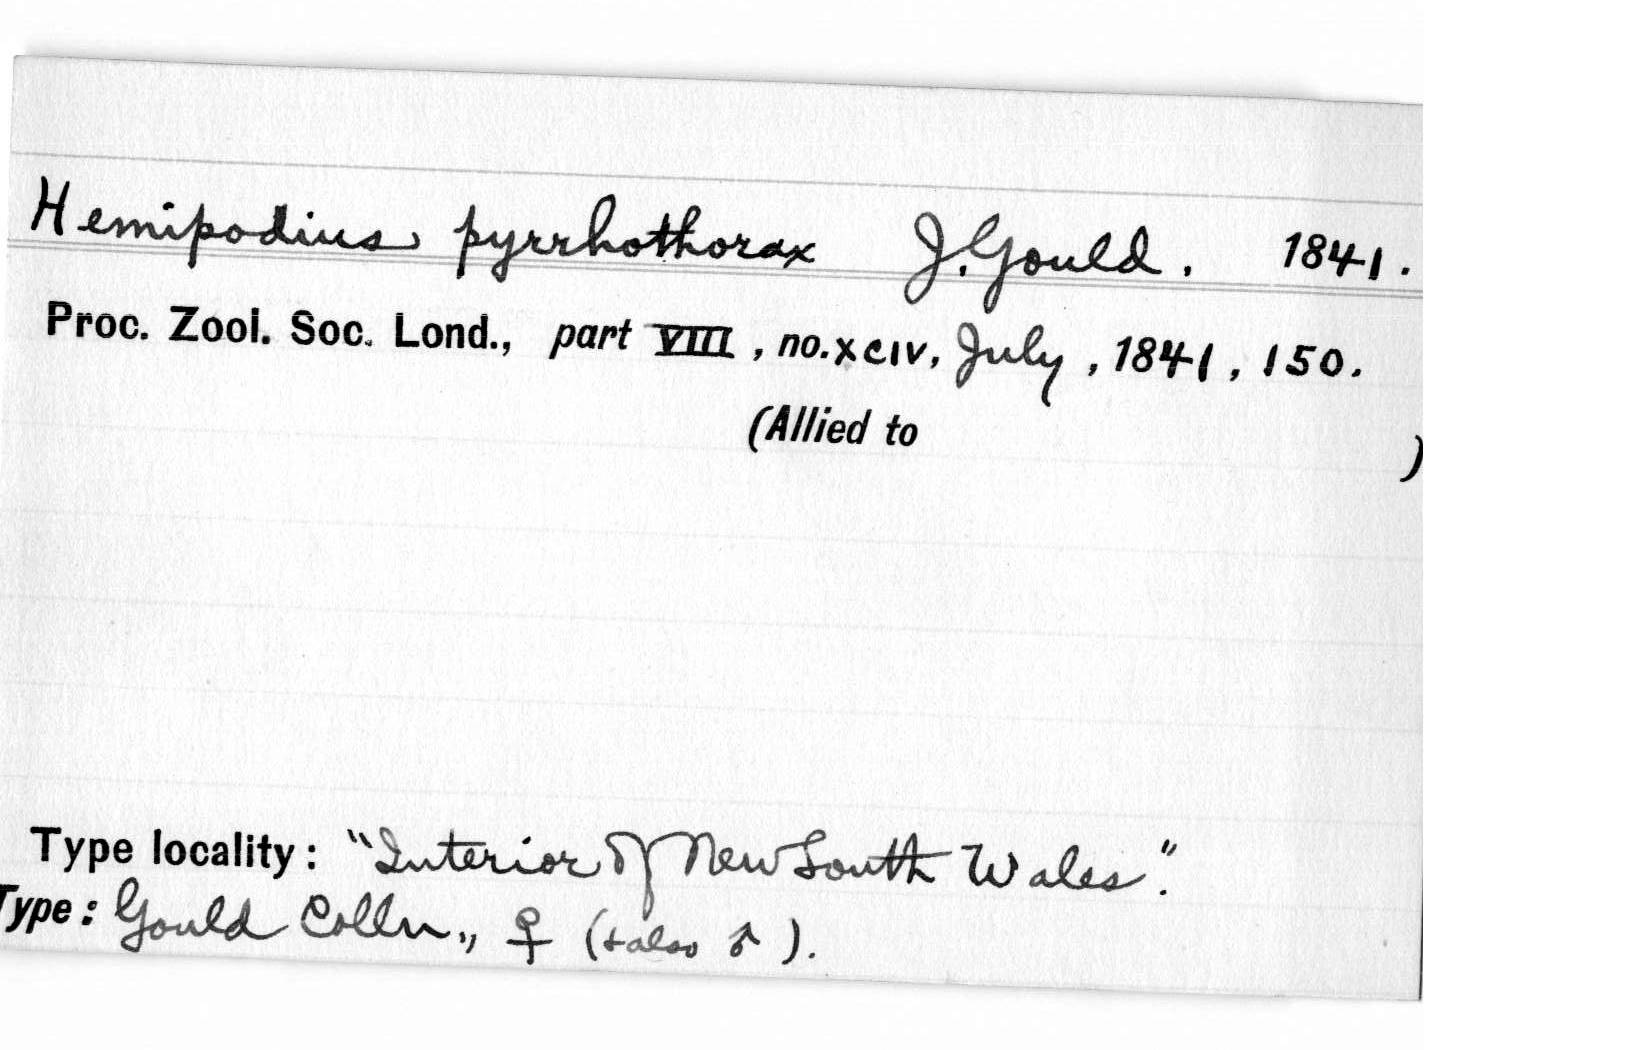 Hemipodius pyrrhothorax J. Gould. 1841.
Proc. Zool. Soc. Lond., part VIII, no. XCIV, July, 1841, 150.
(Allied to )
Type locality: "Interior of New South Wales".
Type: Gould Colln., ♀ (+ also ♂).